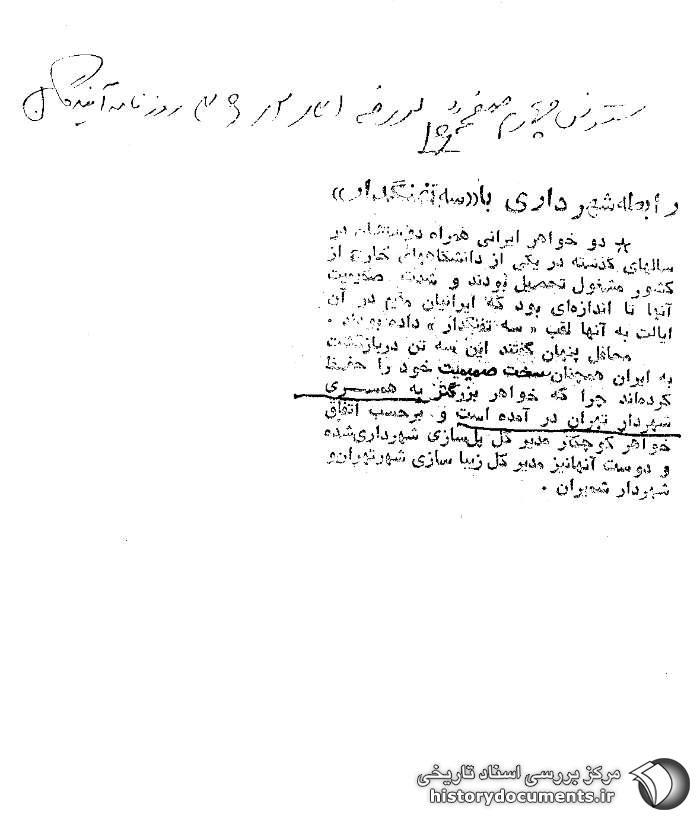 ستون چهارم صفحه ۱۹ مورخه ۳۶/۱۲/۲۱ روزنامه آیندگان
رابطه شهرداری با «سه تفنگدار»
* دو خواهر ایرانی همراه دوستشان در
سالهای گذشته در یکی از دانشگاههای خارج از
کشور مشغول تحصیل بودند و شدت صمیمیت
آنها تا اندازه‌ای بود که ایرانیان مقیم در آن
ایالت به آنها لقب « سه تفنگدار » داده بودند .
محافل پنهان گفتند این سه تن دربازگشت
به ایران همچنان سخت صمیمیت خود را حفظ
کرده‌اند چرا که خواهر بزرگتر به همسری
شهردار تهران در آمده است و برحسب اتفاق
خواهر کوچکتر مدیر کل پل‌سازی شهرداری‌شده
و دوست آنهانیز مدیر کل زیبا سازی شهرتهران‌و
شهردار شمیران .
مرکز بررسی اسناد تاریخی
historydocuments.ir